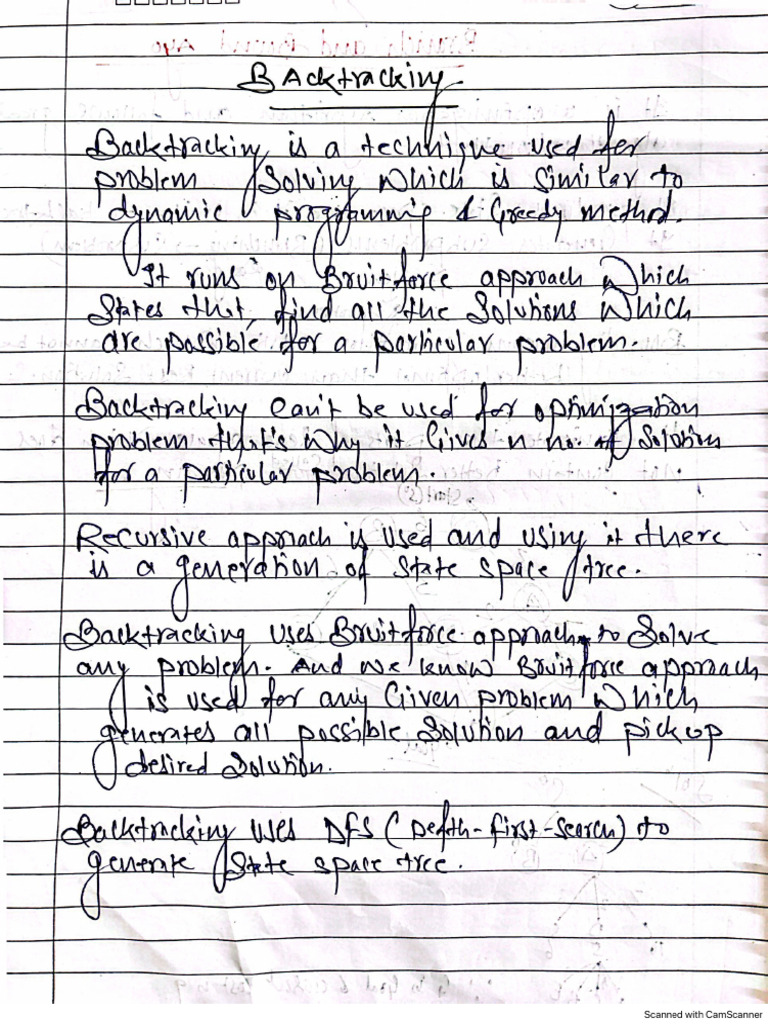 BAcktracking
Backtracking is a technique used for
problem Solving which is similar to
dynamic programming & Greedy method.
It runs on Bruitforce approach which
States that, find all the Solutions which
are possible for a particular problem.
Backtracking can't be used for optimization
problem that's why it Gives n no. of Solution
for a particular problem.
Recursive approach is used and using it there
is a generation of State space tree.
Backtracking uses Bruitforce approach to Solve
any problem. And we know Bruitforce approach
is used for any Given problem which
generates all possible Solution and pick up
desired Solution.
Backtracking uses DFS (Depth-first-search) to
generate State space tree.
Scanned with CamScanner